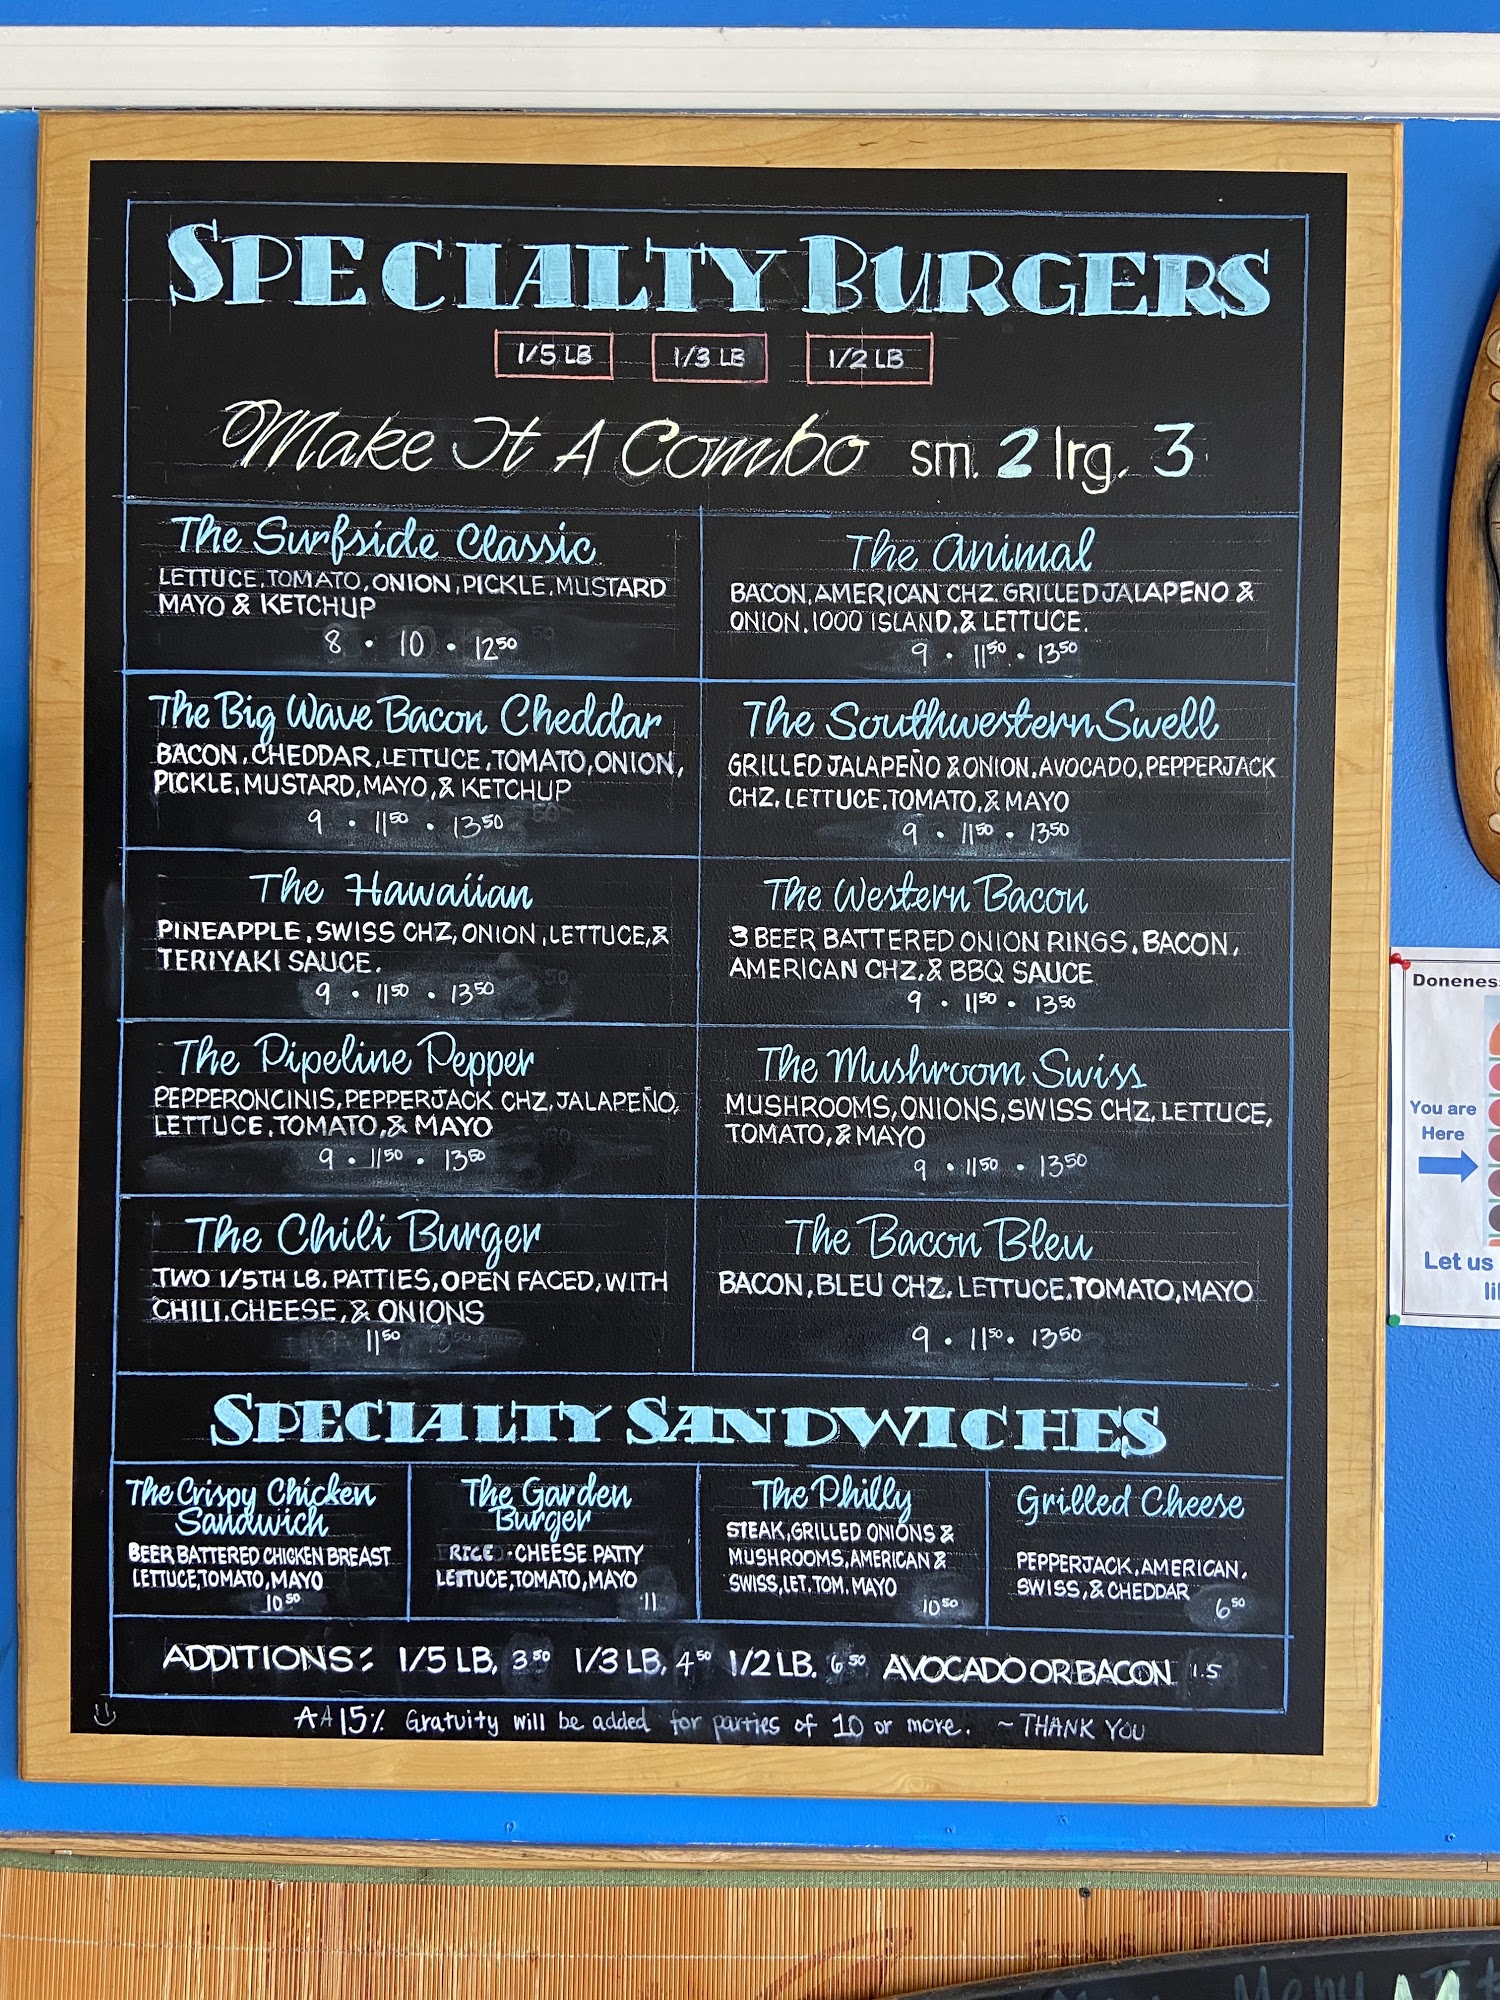 SPECIALTY BURGERS
1/5 LB 1/3 LB 1/2 LB
Make It A Combo sm. 2 lrg. 3
The Surfside Classic
LETTUCE, TOMATO, ONION, PICKLE, MUSTARD
MAYO & KETCHUP
8 • 10 • 12⁵⁰
The Animal
BACON, AMERICAN CHZ. GRILLED JALAPENO &
ONION, 1000 ISLAND, & LETTUCE.
9 • 11⁵⁰ • 13⁵⁰
The Big Wave Bacon Cheddar
BACON, CHEDDAR, LETTUCE, TOMATO, ONION,
PICKLE, MUSTARD, MAYO, & KETCHUP
9 • 11⁵⁰ • 13⁵⁰
The Southwestern Swell
GRILLED JALAPEÑO & ONION, AVOCADO, PEPPERJACK
CHZ, LETTUCE, TOMATO, & MAYO
9 • 11⁵⁰ • 13⁵⁰
The Hawaiian
PINEAPPLE, SWISS CHZ, ONION, LETTUCE, &
TERIYAKI SAUCE.
9 • 11⁵⁰ • 13⁵⁰
The Western Bacon
3 BEER BATTERED ONION RINGS, BACON,
AMERICAN CHZ, & BBQ SAUCE
9 • 11⁵⁰ • 13⁵⁰
The Pipeline Pepper
PEPPERONCINIS, PEPPERJACK CHZ, JALAPEÑO,
LETTUCE, TOMATO, & MAYO
9 • 11⁵⁰ • 13⁵⁰
The Mushroom Swiss
MUSHROOMS, ONIONS, SWISS CHZ, LETTUCE,
TOMATO, & MAYO
9 • 11⁵⁰ • 13⁵⁰
The Chili Burger
TWO 1/5TH LB. PATTIES, OPEN FACED, WITH
CHILI, CHEESE, & ONIONS
11⁵⁰
The Bacon Bleu
BACON, BLEU CHZ, LETTUCE, TOMATO, MAYO
9 • 11⁵⁰ • 13⁵⁰
SPECIALTY SANDWICHES
The Crispy Chicken
Sandwich
BEER BATTERED CHICKEN BREAST
LETTUCE, TOMATO, MAYO
10⁵⁰
The Garden
Burger
RICE • CHEESE PATTY
LETTUCE, TOMATO, MAYO
11
The Philly
STEAK, GRILLED ONIONS &
MUSHROOMS, AMERICAN &
SWISS, LET. TOM. MAYO
10⁵⁰
Grilled Cheese
PEPPERJACK, AMERICAN,
SWISS, & CHEDDAR
6⁵⁰
ADDITIONS: 1/5 LB. 3⁵⁰ 1/3 LB. 4⁵⁰ 1/2 LB. 6⁵⁰ AVOCADO OR BACON 1.5
A A 15% Gratuity will be added for parties of 10 or more. ~ THANK YOU
Donenes
You are
Here
Let us
Menu